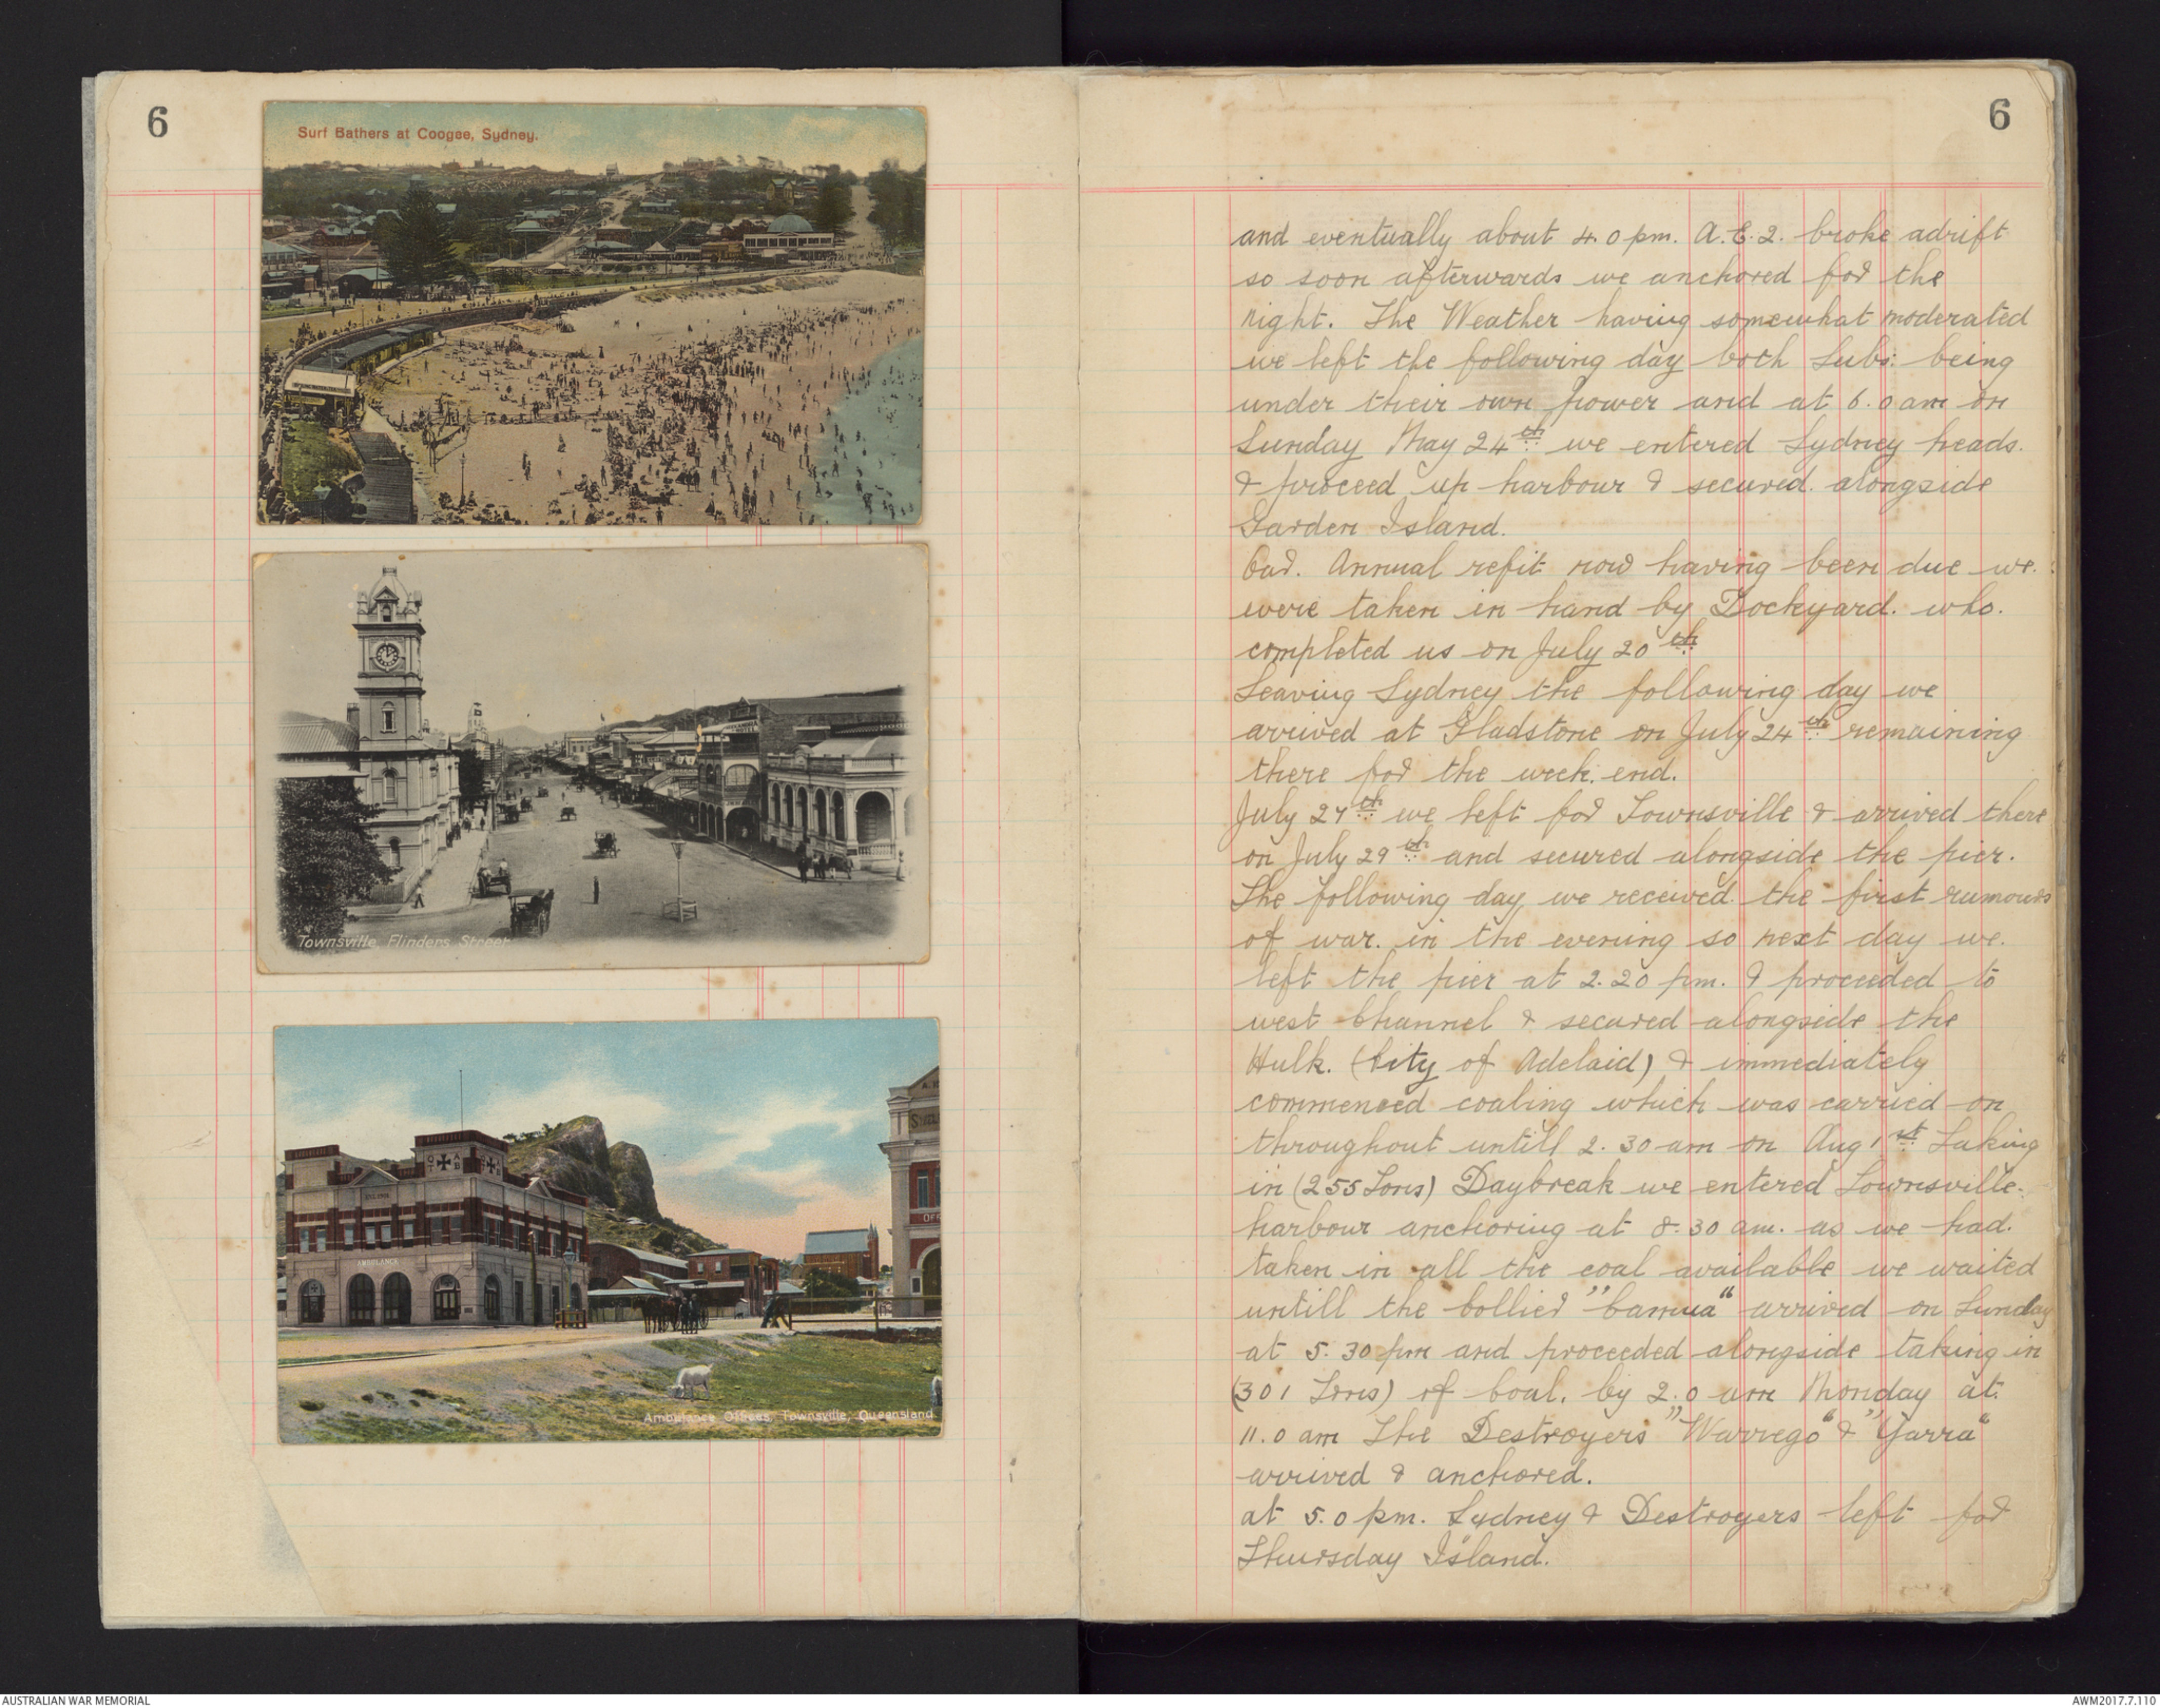 6
Surf Bathers at Coogee, Sydney.
Townsville, Flinders Street
AMBULANCE
Ambulance Offices, Townsville, Queensland
6
and eventually about 4.0 pm. A.E.2. broke adrift
so soon afterwards we anchored for the
night. The Weather having somewhat moderated
we left the following day both Subs: being
under their own power and at 6.0 am on
Sunday May 24th we entered Sydney heads.
& proceed up harbour & secured alongside
Garden Island.
Our. Annual refit now having been due we.
were taken in hand by Dockyard. who.
completed us on July 20th
Leaving Sydney the following day we
arrived at Gladstone on July 24th remaining
there for the week. end.
July 27th we left for Townsville & arrived there
on July 29th and secured alongside the pier.
The following day we received the first rumours
of war. in the evening so next day we.
left the pier at 2.20 pm. & proceeded to
west Channel & secured alongside the
Hulk. (City of Adelaid) & immediately
commenced coaling which was carried on
throughout untill 2.30 am on Aug 1st Taking
in (255 Tons) Daybreak we entered Townsville.
harbour anchoring at 8.30 am. as we had.
taken in all the coal available we waited
untill the Collier arrived on Sunday
at 5.30 pm and proceeded alongside taking in
(301 Tons) of Coal. by 2.0 am Monday at.
11.0 am The Destroyers "Warrego" & "Yarra"
arrived & anchored.
at 5.0 pm. Sydney & Destroyers left for
Thursday Island.
AUSTRALIAN WAR MEMORIAL
AWM2017.7.110